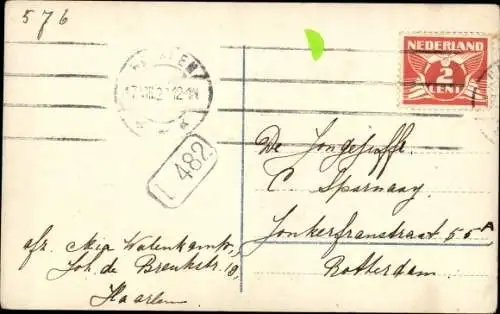 576
NEDERLAND
2
CENT
HAARLEM
12-1N
L 482
De Jongejuffr.
C Sparnaay
Jonkerfransstraat 55A
Rotterdam
afz. Mia Walenkamp,
Joh. de Breukstr. 19,
Haarlem